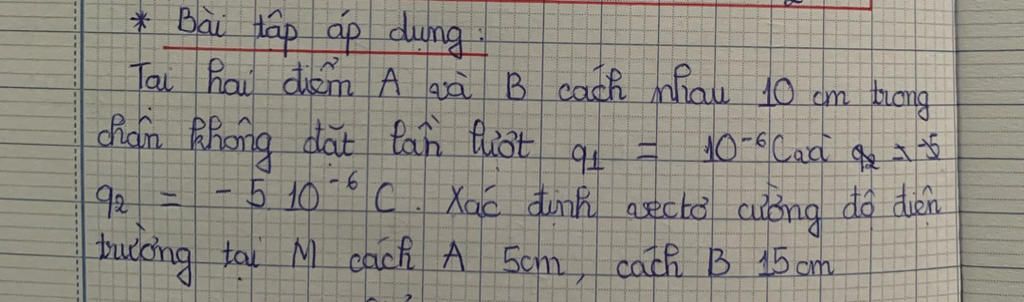 * Bài tập áp dụng:
Tại hai điểm A và B cách nhau 10 cm trong
chân không đặt lần lượt q1 = 10⁻⁶C và
q2 = - 5 10⁻⁶ C. Xác định vectơ cường độ điện
trường tại M cách A 5cm, cách B 15 cm